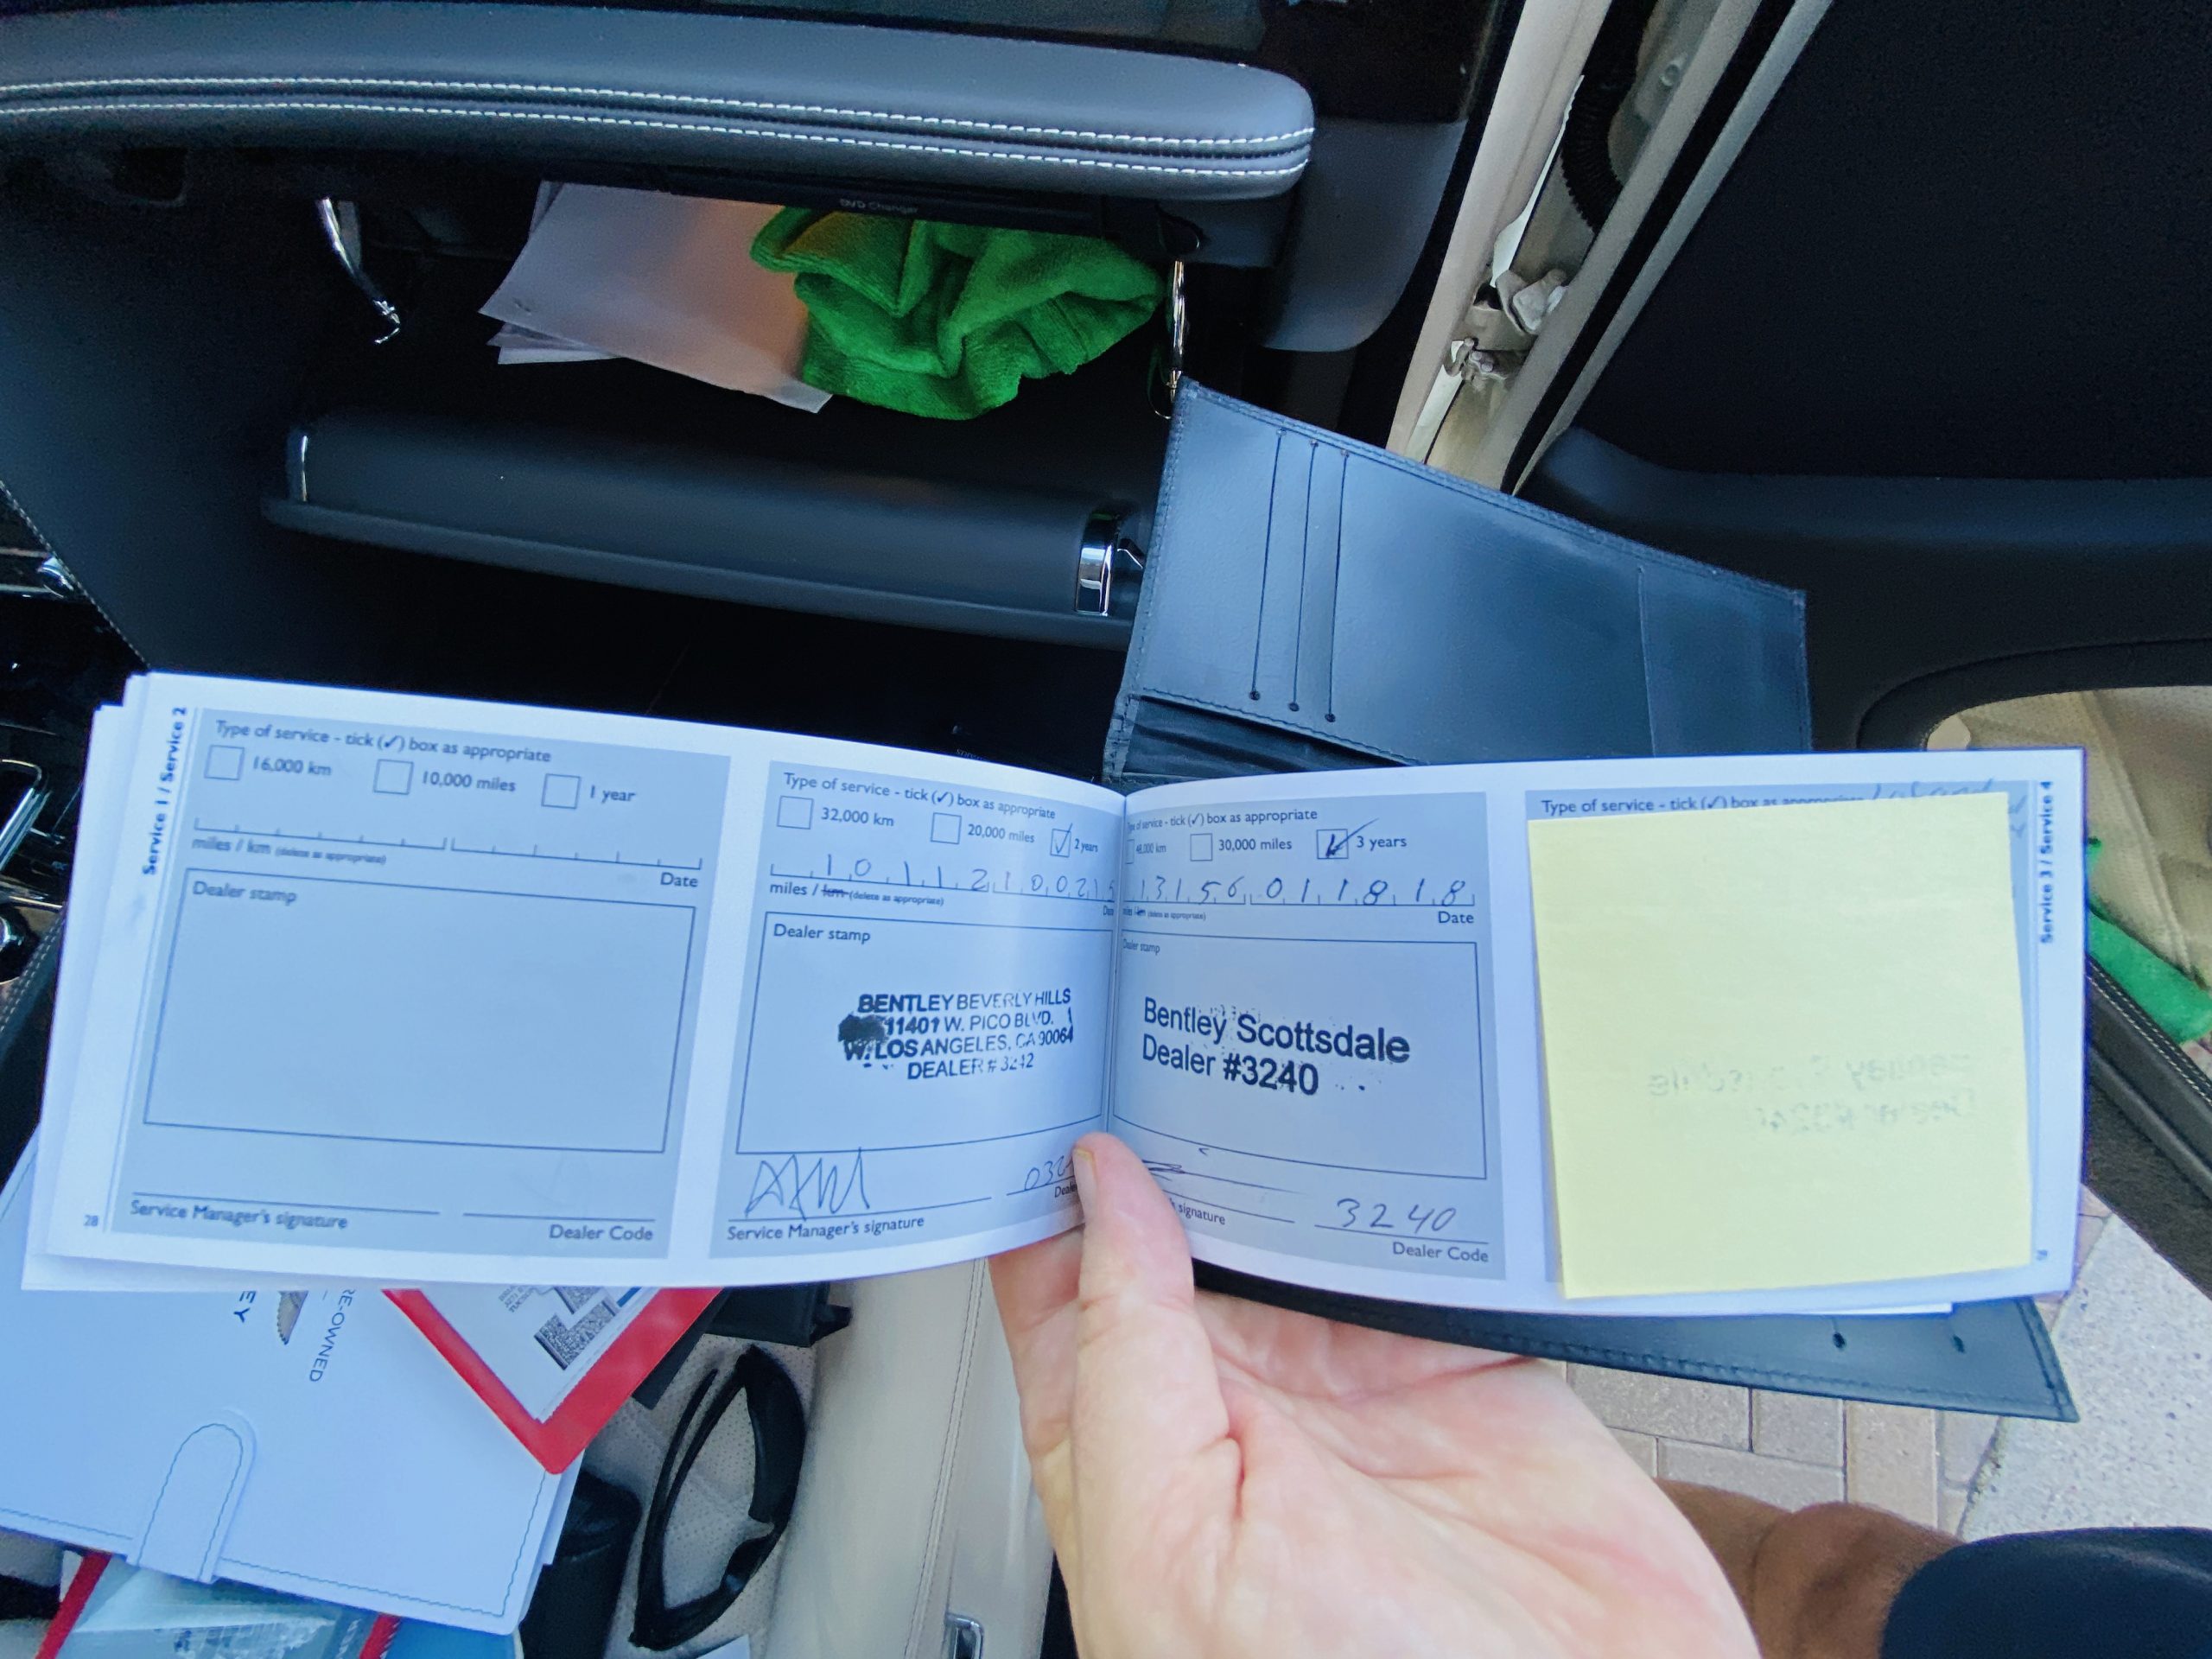 DVD Changer
Service 1 / Service 2
Type of service - tick (✓) box as appropriate
16,000 km 10,000 miles 1 year
miles / km (delete as appropriate)
Date
Dealer stamp
Service Manager's signature
Dealer Code
28
Type of service - tick (✓) box as appropriate
32,000 km 20,000 miles ✓ 2 years
miles / km (delete as appropriate)
Dealer stamp
BENTLEY BEVERLY HILLS
11401 W. PICO BLVD.
W. LOS ANGELES, CA 90064
DEALER # 3242
Service Manager's signature
of service - tick (✓) box as appropriate
30,000 miles ✓ 3 years
3156 011818
(delete as appropriate)
Date
Dealer stamp
Bentley Scottsdale
Dealer #3240
signature
3240
Dealer Code
Type of service - tick (✓) box as appropriate
Service 3 / Service 4
RE-OWNED
EY